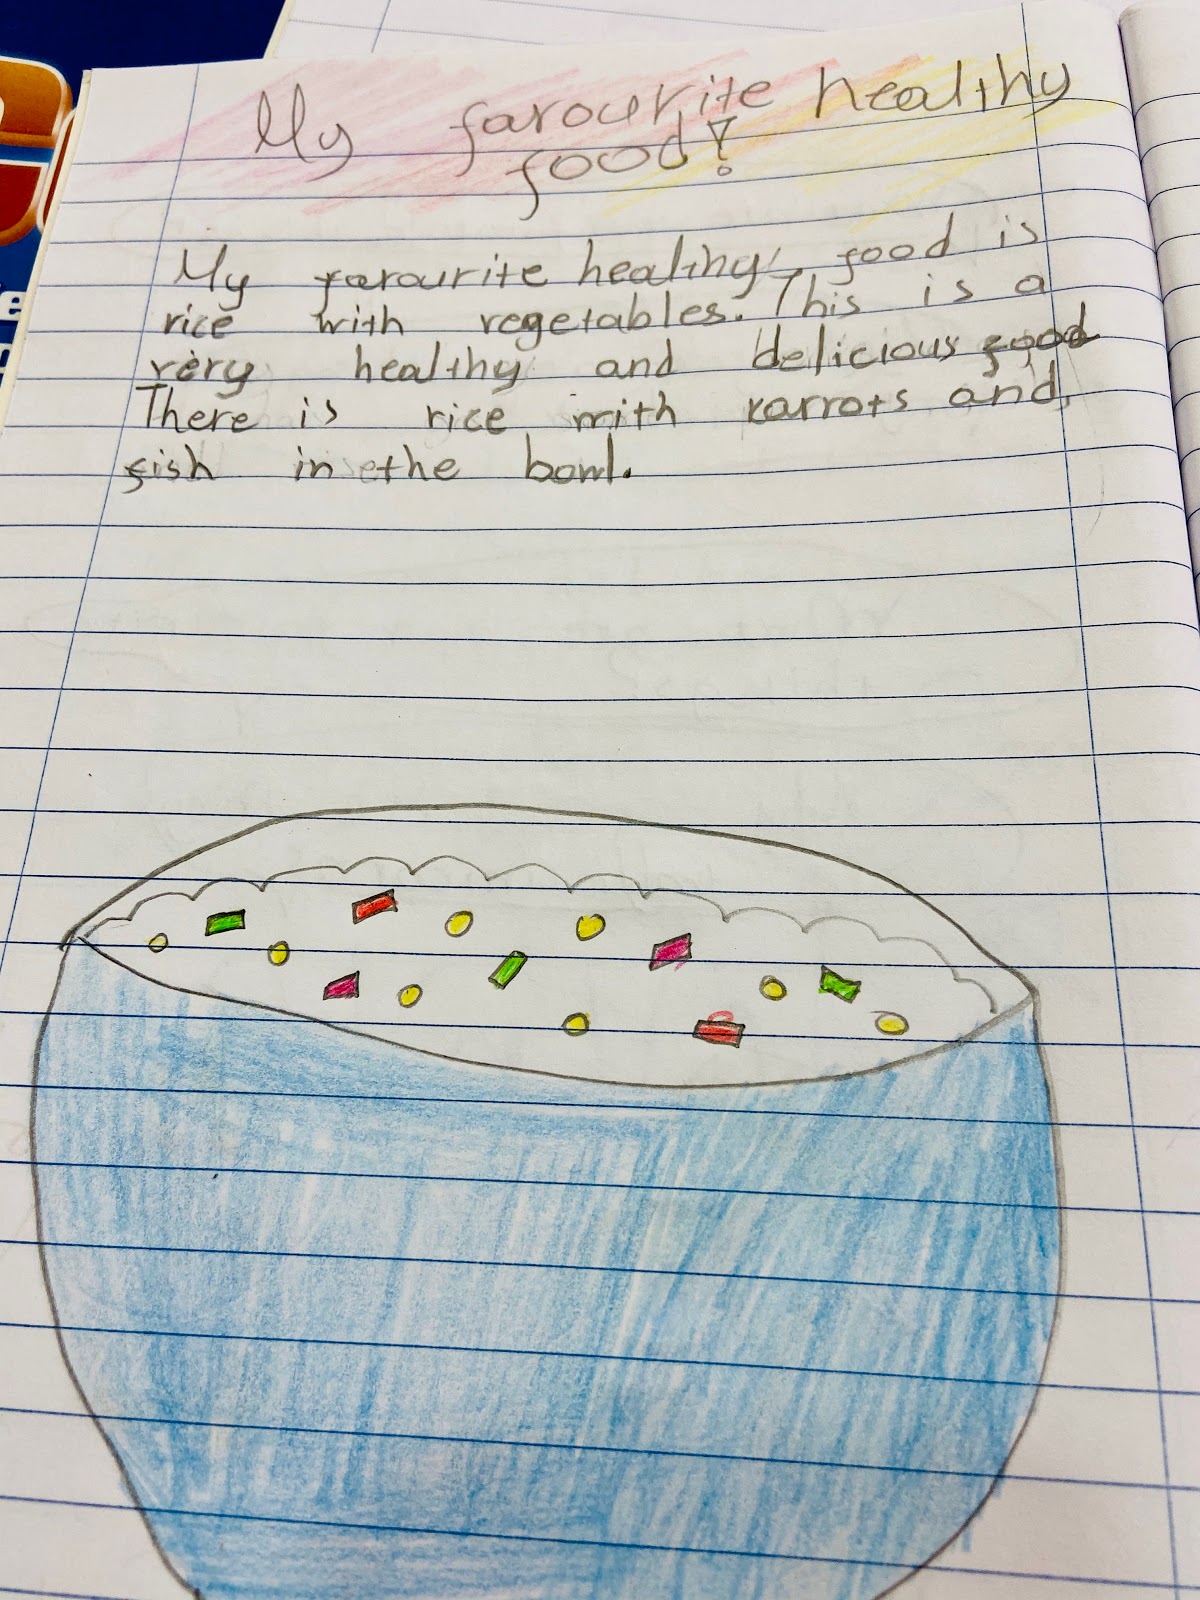 My favourite healthy
food!
My favourite healthy food is
rice with vegetables. This is a
very healthy and delicious food
There is rice with karrots and
fish in the bowl.